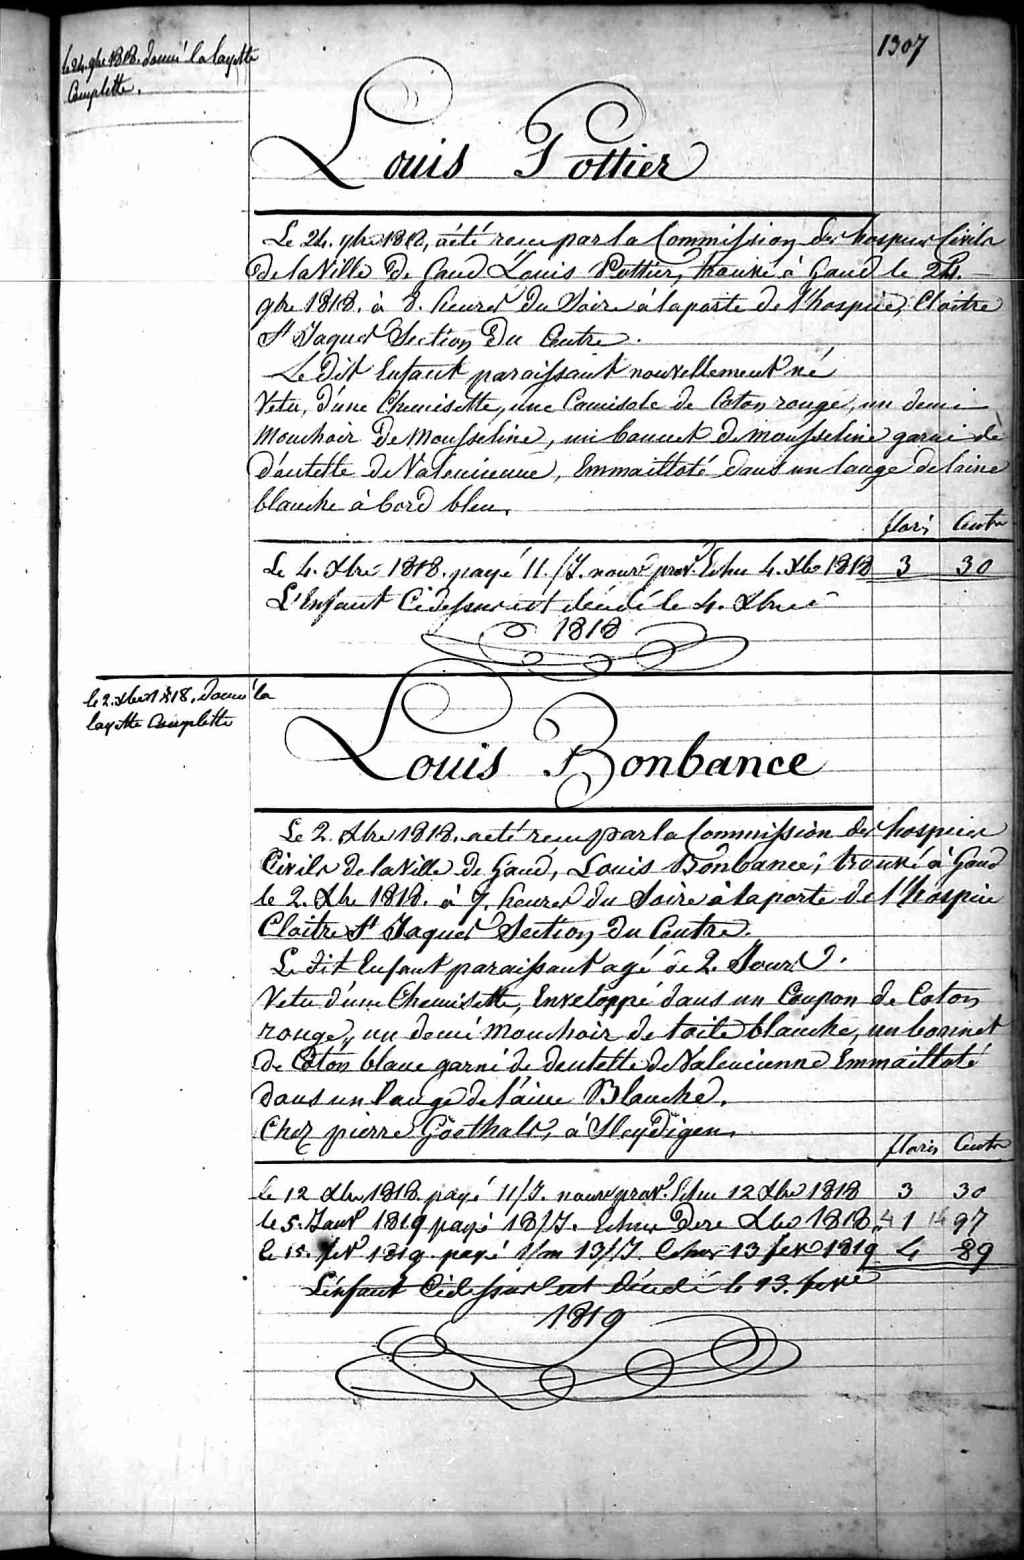 1307
le 24. 9bre 1818. donné la layette
Complette.
Louis Pottier
Le 24. 9bre 1818, a été recu par la Commission des hospices Civils
de la Ville de Gand Louis Pottier, trouvé à Gand le 24.
9bre 1818. à 8. heures du Soire à la porte de l'hospice, Cloitre
St Jaques Section du Centre.
Le dit Enfant paraissant nouvellement né
Vetu, d'une Chemisette, une Camisole de Coton rouge, un demi
Mouchoir de Mousseline, un bonnet de mousseline garni de
d'entelle de Valencienne, Emmailloté dans un lange de laine
blanche à bord bleu.
floris Cents
Le 4. Xbre 1818. payé 11./J. nourre prov. Echu 4. Xbre 1818 3 30
L'Enfant Cidessus est décédé le 4. Xbre
1818
le 2. Xbre 1818. donné la
layette Complette
Louis Bonbance
Le 2. Xbre 1818. a eté recu par la Commission des hospices
Civils de la Ville de Gand, Louis Bonbance, trouvé à Gand
le 2. Xbre 1818. à 7. heures du Soire à la porte de l'hospice
Cloitre St Jaques Section du Centre.
Le dit Enfant paraissant agé de 2. Jours.
Vetu d'une Chemisette, Enveloppé dans un Coupon de Coton
rouge, un demi Mouchoir de toile blanche, un bonnet
de Coton blanc garni de dentelle de Valencienne Emmailloté
dans un lange de laine Blanche.
Chez pierre Goethals, à Seydigen.
floris Cents
le 12 Xbre 1818. payé 11/J. nourre prov. Echu 12 Xbre 1818 3 30
le 5. Janv 1819 payé 18/J. Echus Dere Xbre 1818. 4 1 14 97
le 15. fev 1819. payé 1/m 13/J. Echus 13 fev 1819 4 89
L'enfant Cidessus est décédé le 13. fevr
1819